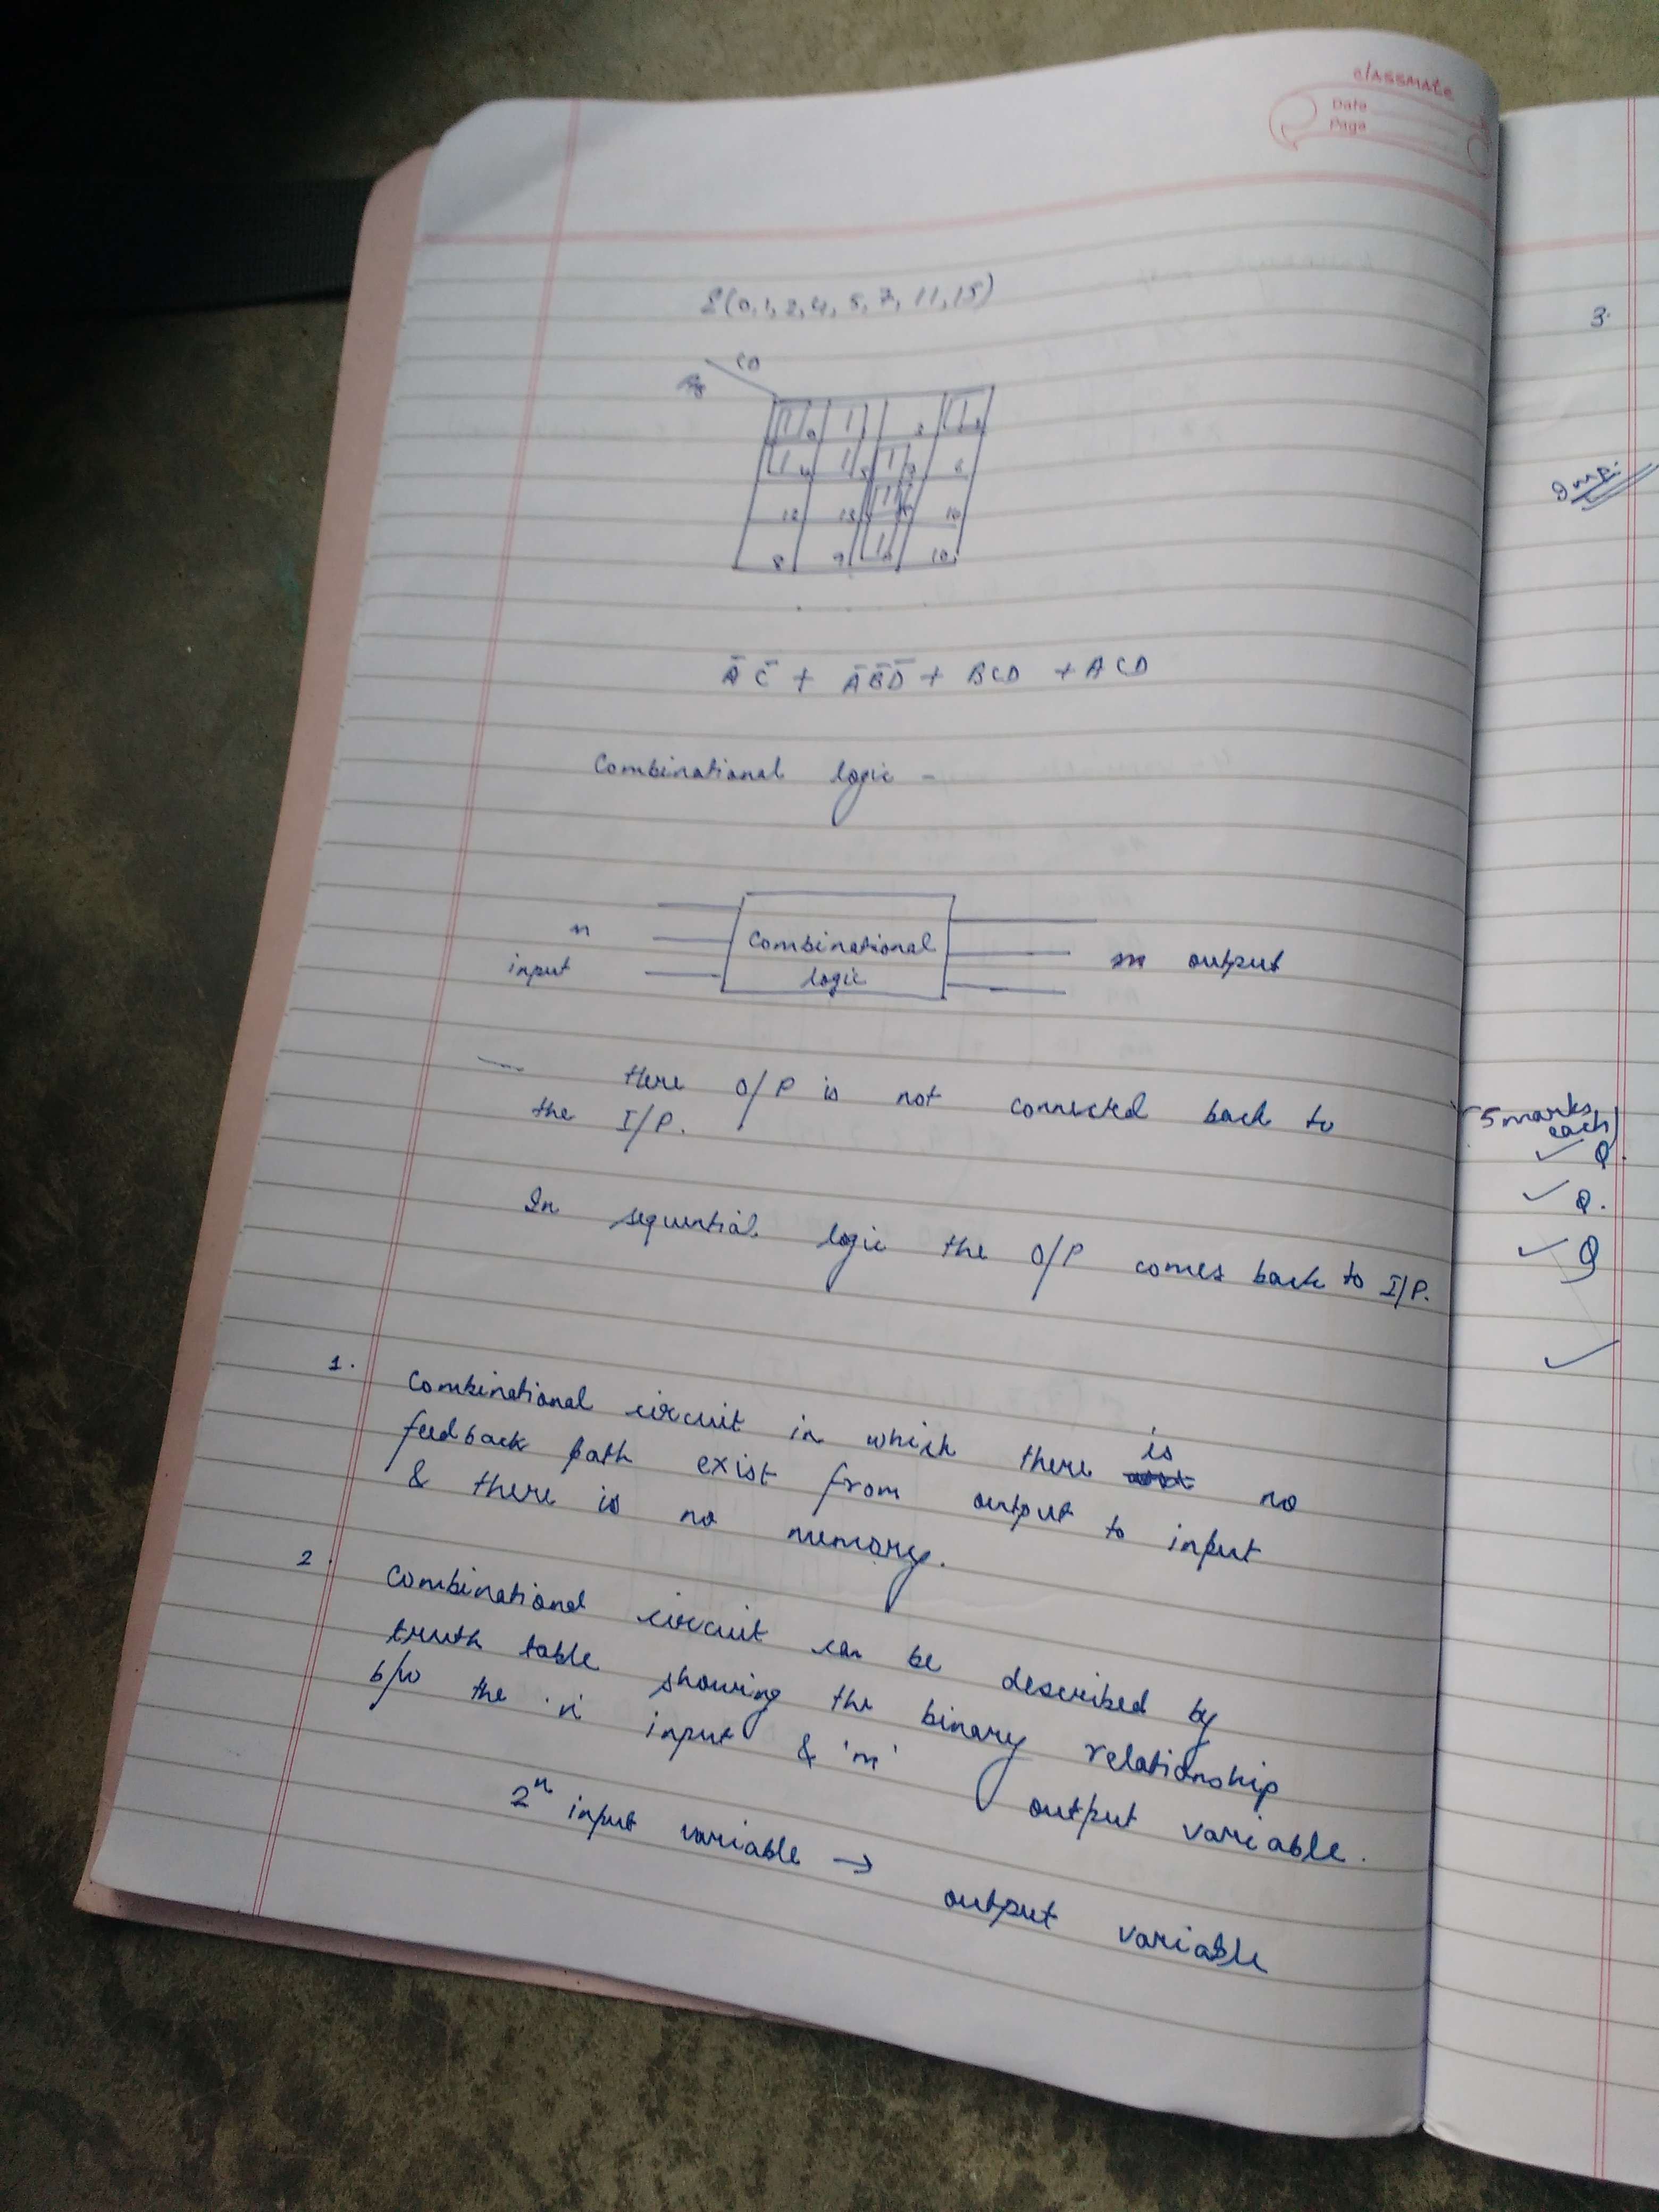 classmate
Date
Page
Σ(0,1,2,4,5,7,11,15)
CD
AB
1 0 1 3 1 2
1 4 1 5 1 7 6
12 13 1 10
8 9 1 10
A̅ C̅ + A̅B̅D̅ + BCD + ACD
Combinational logic -
n
input
Combinational
logic
m output
— Here O/P is not connected back to
the I/P.
In sequential logic the O/P comes back to I/P.
1. Combinational circuit in which there is no
feedback path exist from output to input
& there is no memory.
2. Combinational circuit can be described by
truth table showing the binary relationship
b/w the 'n' input & 'm' output variable.
2ⁿ input variable → output variable
3.
Imp:
(5 marks
each)
✓ Q.
✓ Q.
✓ Q
✓